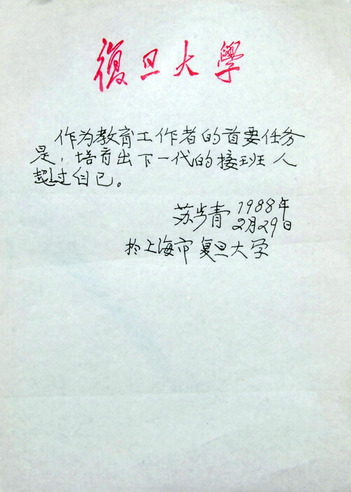 復旦大學
作为教育工作者的首要任务
是，培育出下一代的接班人
超过自己。
苏步青 1988年
2月29日
於上海市复旦大学